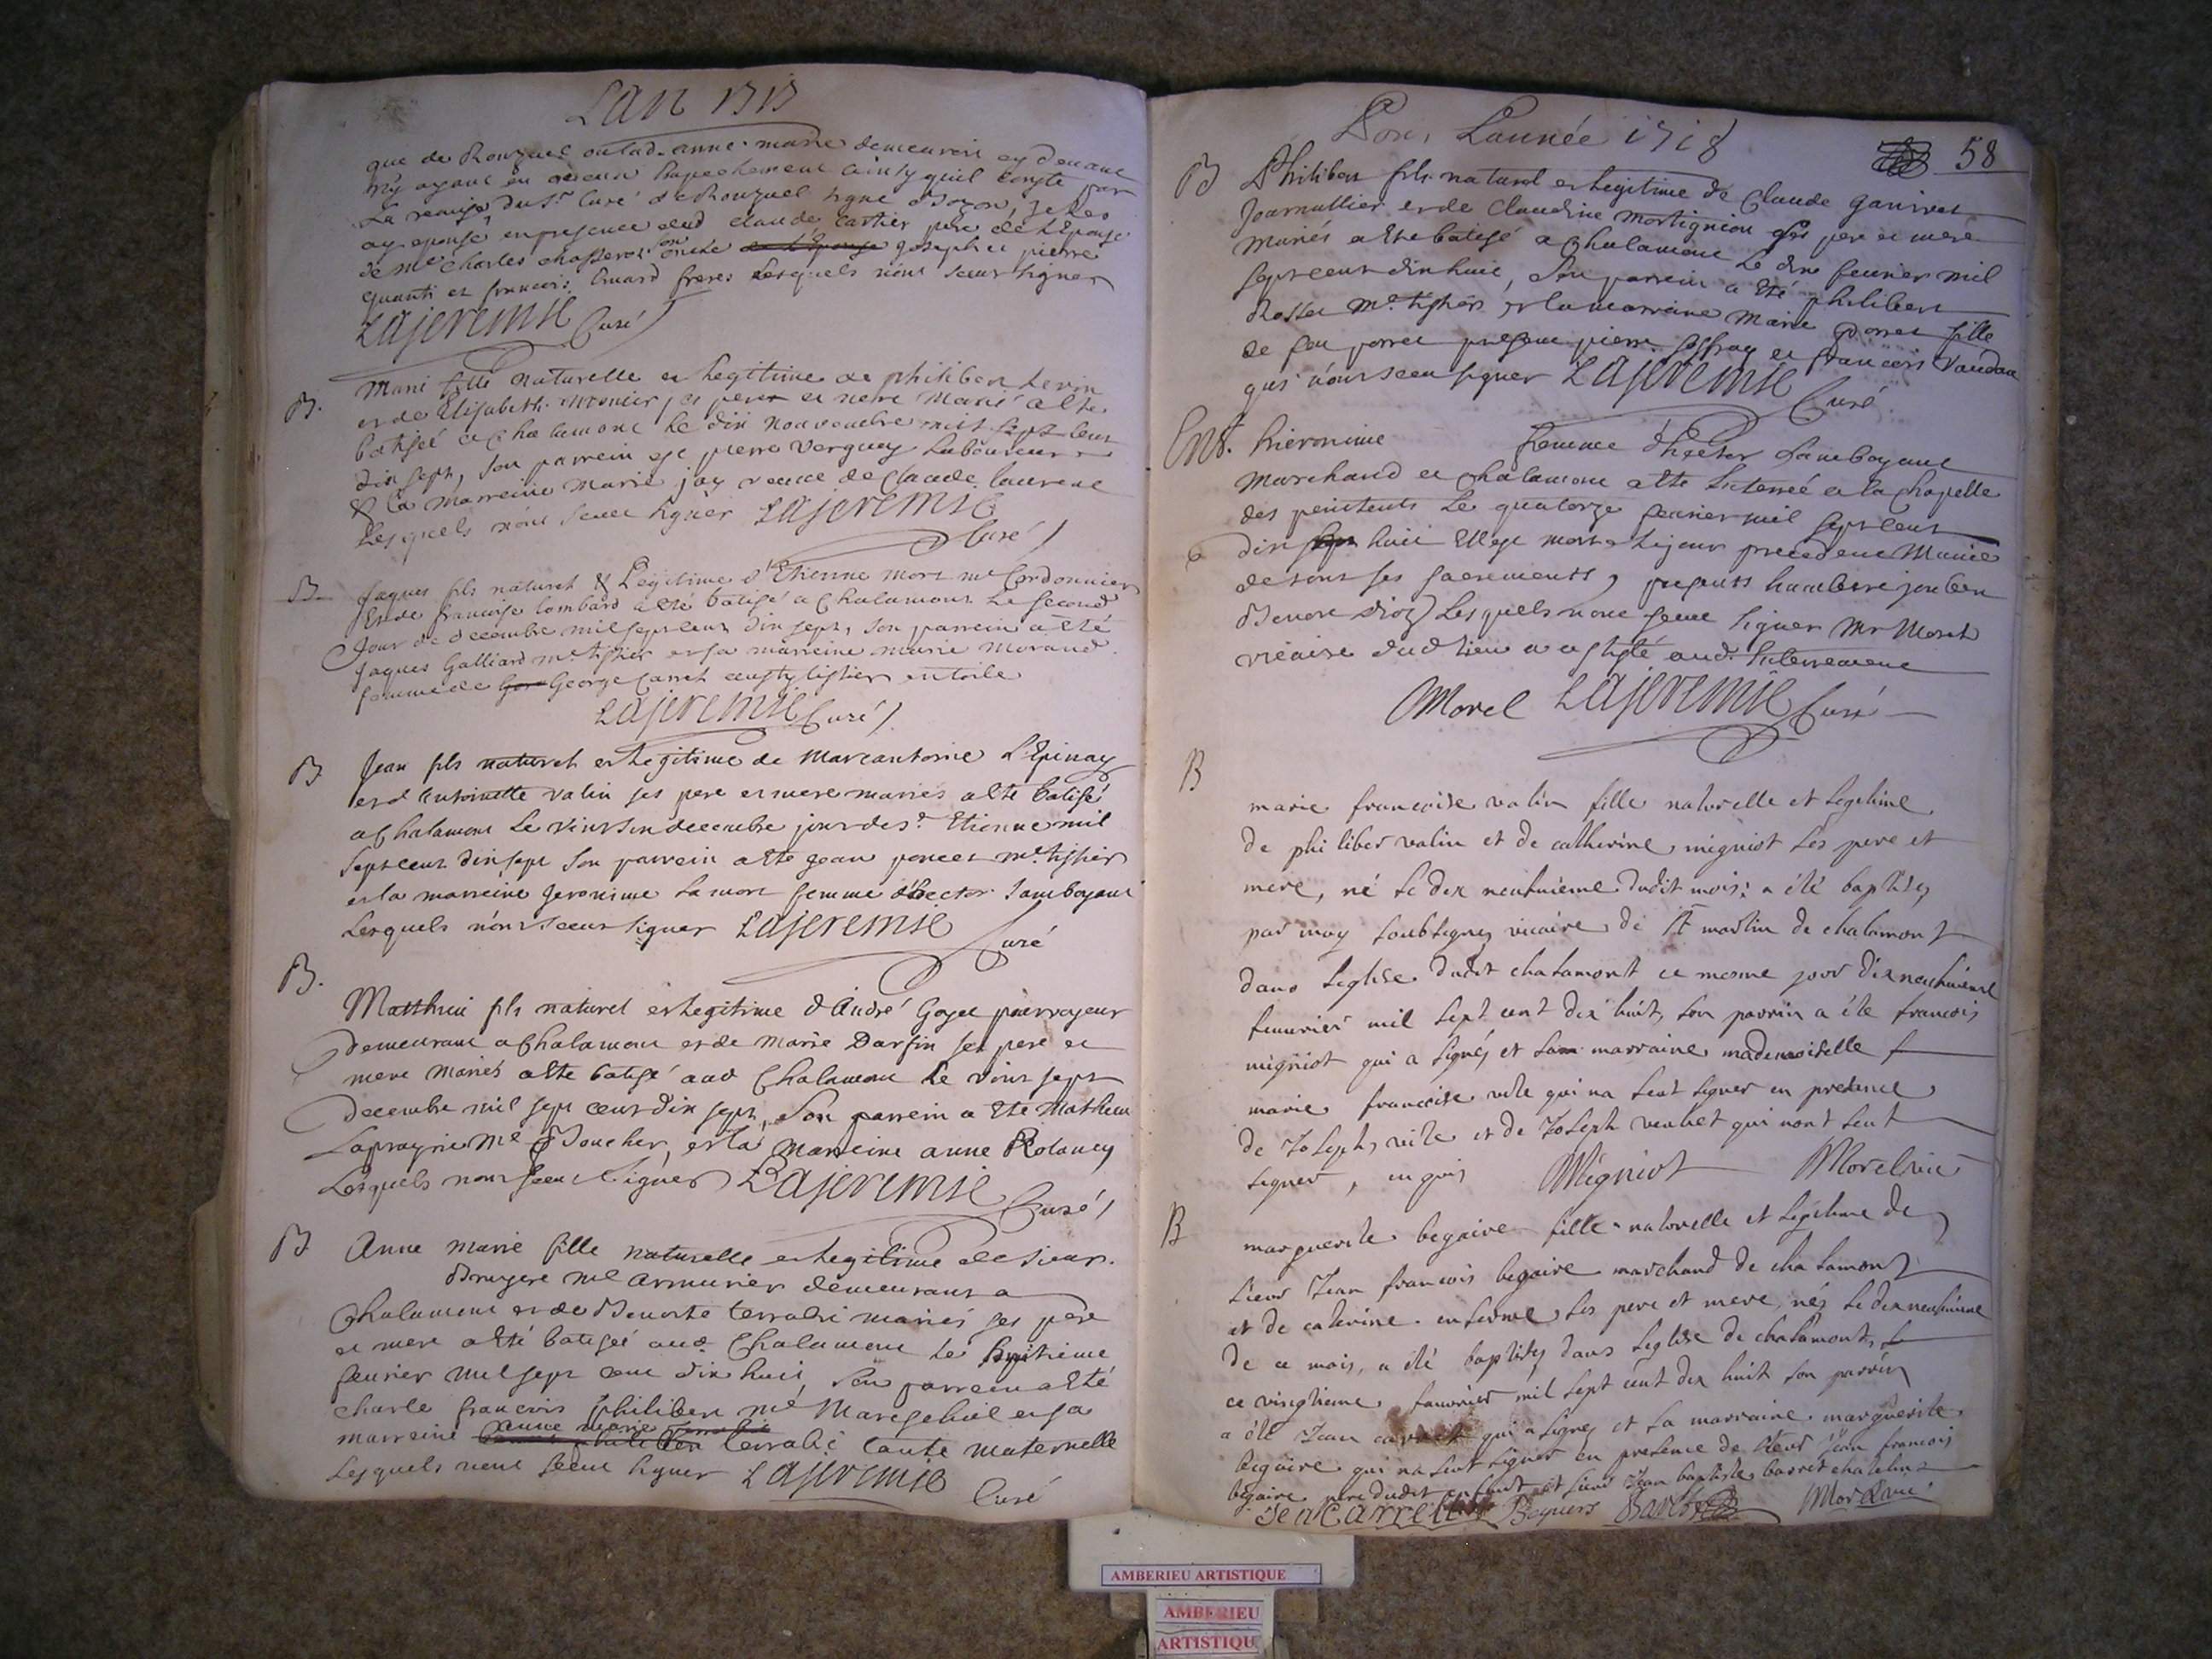 Lan 1717
que de Ronzuel ou lad. anne marie demeuroit cy devant
n'y ayant eu aucun Empechement ainsy quil conste par
La remise du Sr Curé de Ronzuel signé
ay epousé en presence dud claude cartier père de L'Epouse
de Me Charles chasseros son oncle joseph et pierre
quanti et francois Emard freres Lesquels n'ont sceu signer
Lajeremie Curé
B. Marie fille naturelle et Legitime de philibert
et de Elisabeth monier ses pere et mere Mariés a Eté
batisée a Chalamont Le dix novembre mil sept cent
dix sept, son parrein est pierre verguay Laboureur
& la marreine Marie jay veuve de Claude laurent
Lesquels n'ont sceu signer Lajeremie
Curé
B Jaques fils naturel & Legitime d'Etienne mort me Cordonnier
et de francoise lombard a eté batisé a Chalamont Le second
Jour de decembre mil sept cent dix sept, son parrein a Eté
Jaques Galliard me tissier et sa marreine marie morand
femme de George Carret aussy tissier en toile
Lajeremie Curé
B Jean fils naturel et Legitime de Marcantoine L'Epinay
et d'Antoinette valin ses pere et mere mariés a Eté batisé
a Chalamont Le vint six decembre jour de St Etienne mil
sept cent dix sept son parrein a Eté jean poncet me tissier
et la marreine jeronime Lamort femme d'hector Lamboyant
Lesquels n'ont sceu signer Lajeremie
Curé
B. Matthieu fils naturel et Legitime d'André Goyet pourvoyeur
demeurant a Chalamont et de Marie Darfin ses pere et
mere Mariés a Eté batisé aud Chalamont Le vint sept
decembre mil sept cent dix sept, Son parrein a Eté Mathieu
Laprayrie Me Boucher, et la Marreine anne Rolancy
Lesquels n'ont sceu signer Lajeremie
Curé
B Anne Marie fille naturelle et Legitime de sieur
Bruyere Me Armurier demeurant a
Chalamont et de Benoite terralri mariés ses pere
et mere a Eté batisée aud Chalamont Le huitieme
fevrier Mil sept cent dix huit, Son parrein a Eté
charle francois philibert me Marechal et sa
marreine terralri tante maternelle
Lesquels n'ont sceu signer Lajeremie
Curé
Pour L'année 1718
58
B Philibert fils naturel et Legitime de Claude ganivet
Journallier et de Claudine Mortignion ses pere et mere
Mariés a Eté batisé a Chalamont Le dix fevrier mil
sept cent dix huit, Son parrein a Eté philibert
Rosset me tissier et la marreine Marie porret fille
de feu porret present pierre joffray et francois Vaudan
qui n'ont sceu signer Lajeremie
Curé
Ent. hieronime femme d'hector Lamboyant
Marchand a Chalamont a Eté Enterrée a la Chapelle
des penitents Le quatorze fevrier mil sept cent
dix huit Elle est morte Le jour precedent Munie
de tous ses sacrements, presents humbert joubert
Benoit Diot Lesquels n'ont sceu signer Mr Morel
vicaire dud lieu a assisté aud. Enterrement
Morel Lajeremie Curé
B marie francoise valin fille naturelle et Legitime
de philiber valin et de catherine migniot ses pere et
mere, né Le dix neufuieme dudit mois, a été baptisé
par moy soubsigné, vicaire de St martin de chalamont
dans Leglise dudit chalamont ce mesme jour dix neufuieme
feuurier mil sept cent dix huit, son parrin a été francois
migniot qui a signé, et sa marraine mademoiselle
marie francoise vile qui na seut signer en presence
de Joseph vile et de Joseph venhet qui nont seut
signer,
Migniot Morel vic
B marguerite begaire fille naturelle et Legitime de
sieur Jean francois begaire marchand de chalamont
et de caterine enserme ses pere et mere, née Le dix neufuieme
de ce mois, a été baptisé dans Leglise de chalamont,
ce vingtieme feuurier mil sept cent dix huit son parrin
a été Jean carret qui a signé, et sa marraine marguerite
begaire qui na seut signer en presence de sieur Jean francois
begaire pere dudit enfant et sieur Jean baptiste barret chatelin
Jen Carret Morel vic
AMBERIEU ARTISTIQUE
AMBERIEU
ARTISTIQU